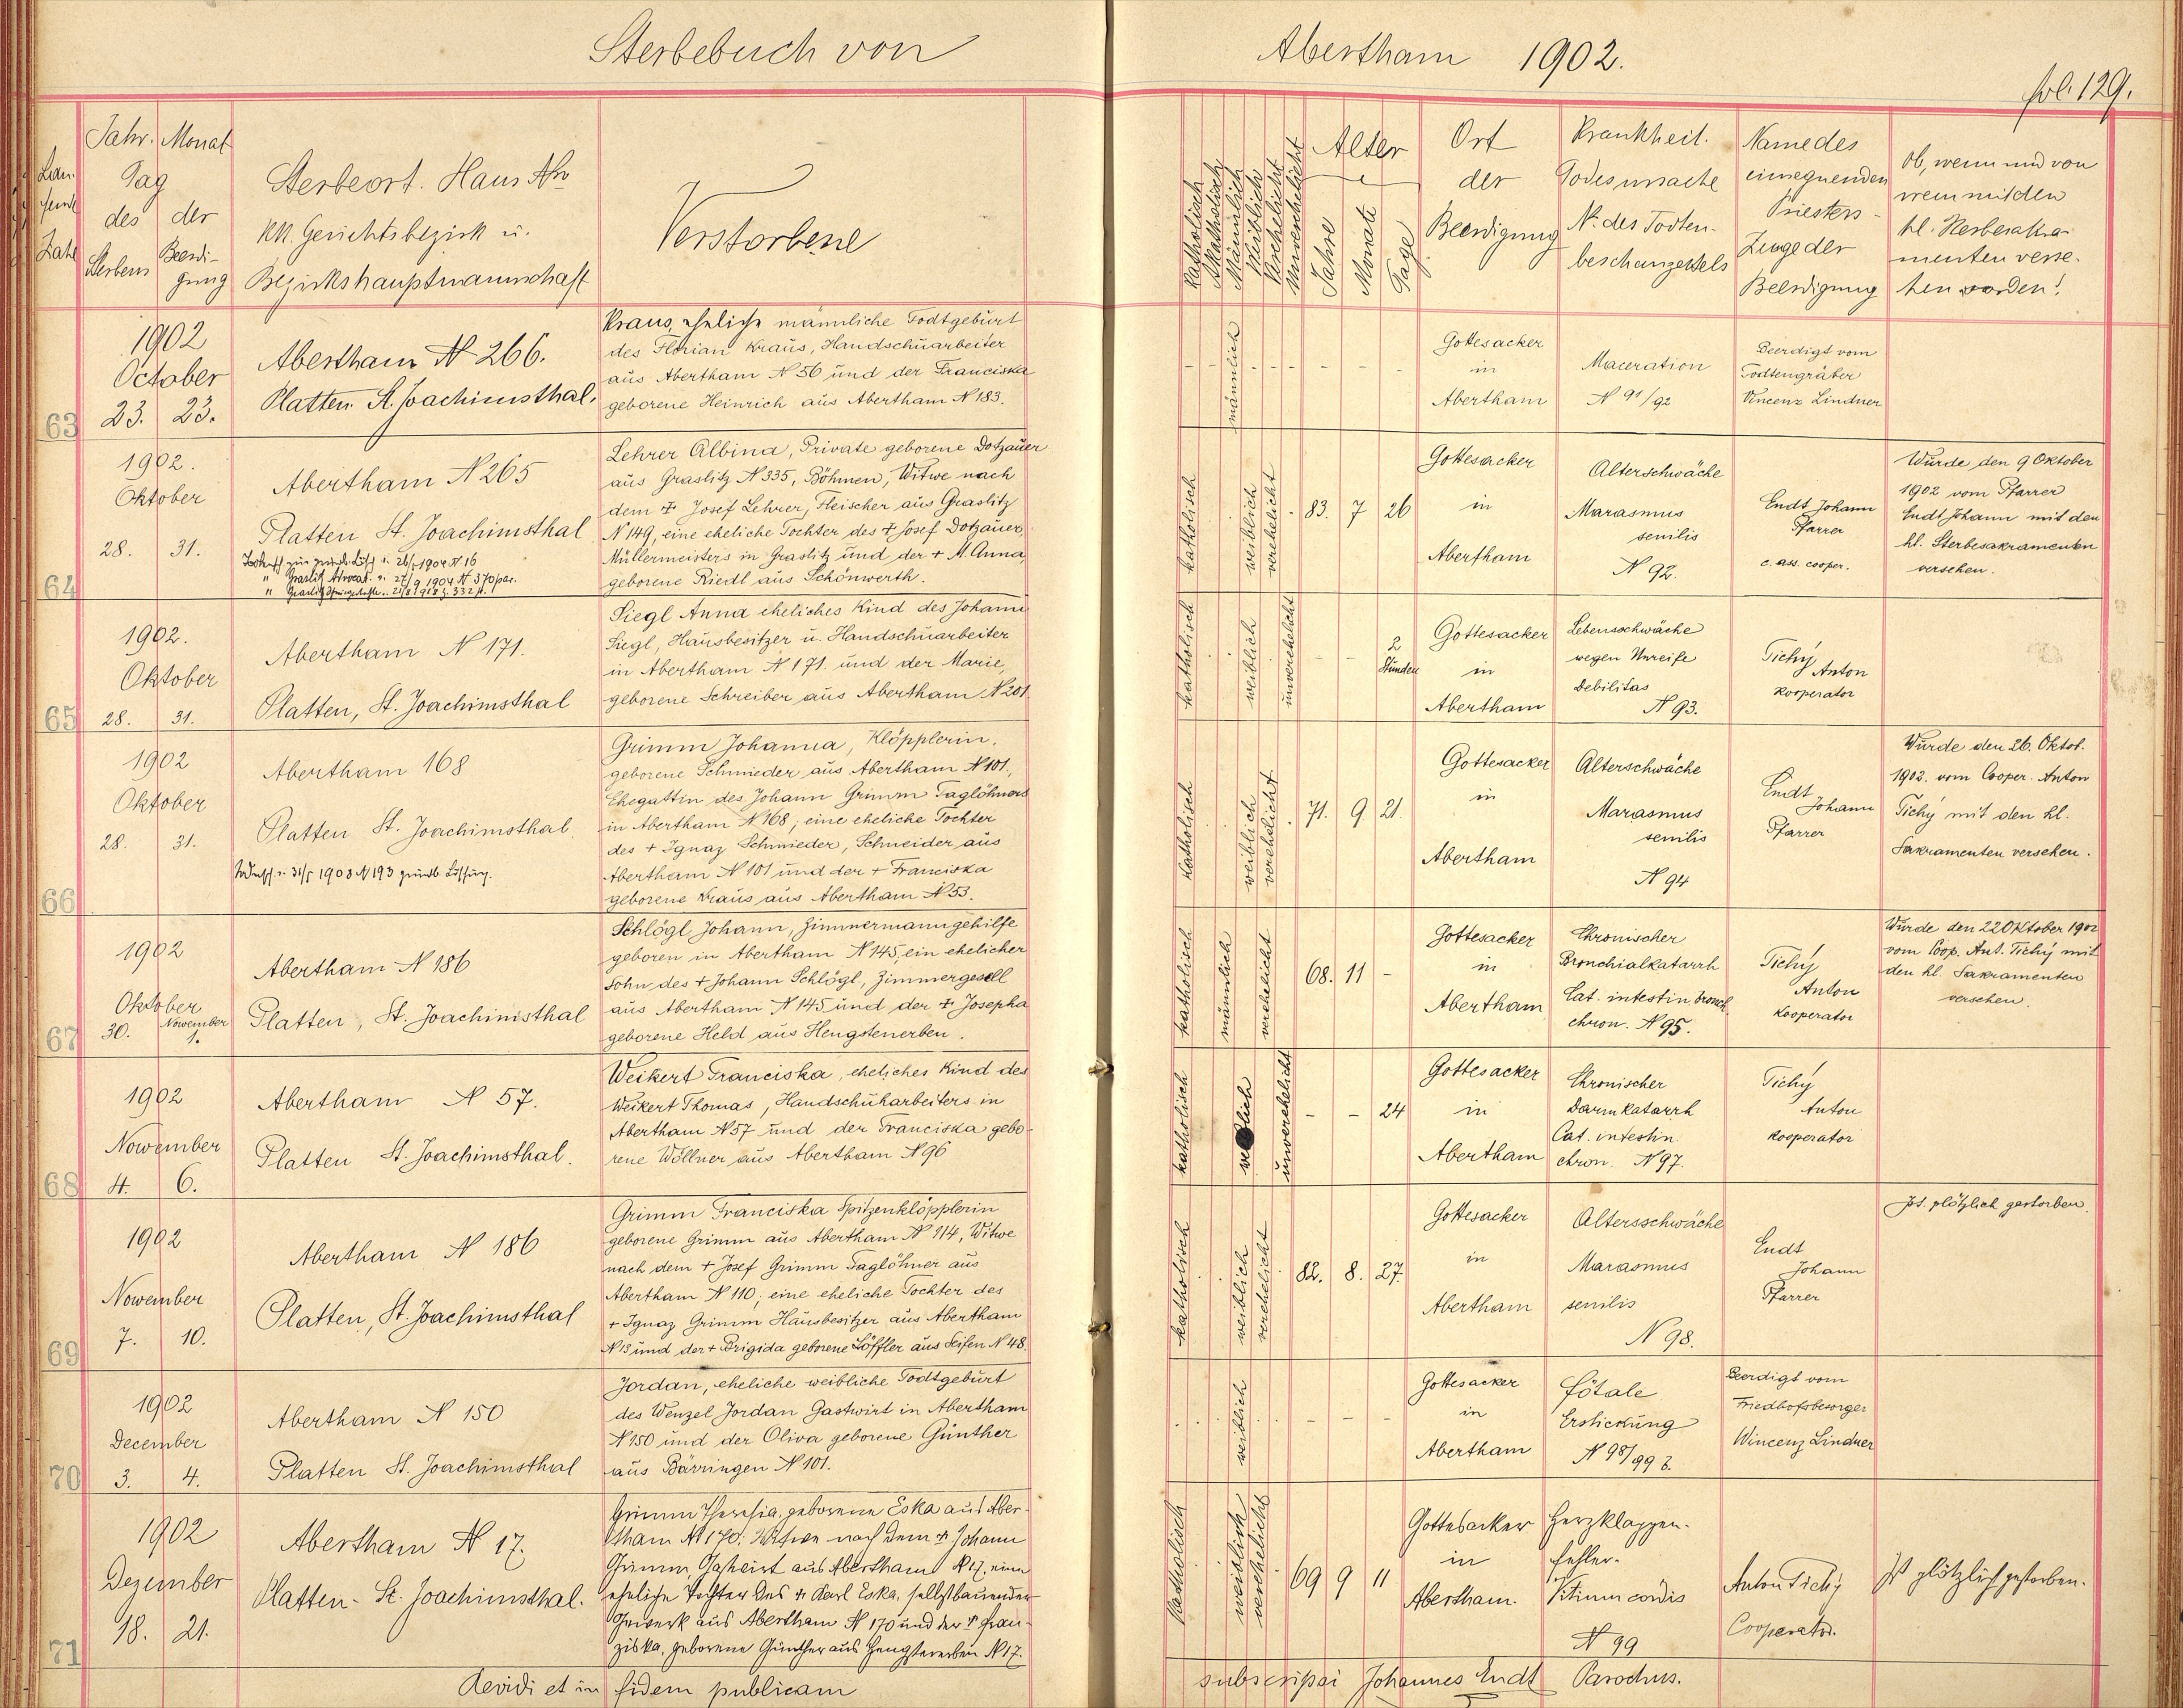 Sterbebuch von Abertham 1902.
fol. 129.
Lau-
fende
Zahl
Jahr. Monat
Tag
des der
Sterbens Beerdi-
gung
Sterbeort. Haus No
KK. Gerichtsbezirk u.
Bezirkshauptmannschaft
Verstorbene
Katholisch
Akatholisch
Männlich
Weiblich
Verehelicht
Unverehelicht
Alter
Jahre
Monate
Tage
Ort
der
Beerdigung
Krankheit.
Todesursache
No. des Todten-
beschauzettels
Name des
einsegnenden
Priesters-
Zeuge der
Beerdigung
Ob, wenn und von
wem mit den
hl. Sterbesakra-
menten verse-
hen worden!
63
1902
October
23. 23.
Abertham N 266.
Platten St. Joachimsthal.
Kraus, eheliche männliche Todtgeburt
des Florian Kraus, Handschuarbeiter
aus Abertham N 56 und der Franciska
geborene Heinrich aus Abertham N 183.
männlich
Gottesacker
in
Abertham
Maceration
N 91/92
Beerdigt vom
Todtengräber
Vincenz Lindner
64
1902.
Oktober
28. 31.
Abertham N 265
Platten St. Joachimsthal
Lehrer Albina, Private geborene Dotzauer
aus Graslitz N 335, Böhmen, Witwe nach
dem + Josef Lehrer, Fleischer aus Graslitz
N 149, eine eheliche Tochter des + Josef Dotzauer
Müllermeisters in Graslitz und der + M. Anna,
geborene Riedl aus Schönwerth.
katholisch
weiblich
verehelicht
83. 7 26
Gottesacker
in
Abertham
Alterschwäche
Marasmus
senilis
N 92.
Endt Johann
Pfarrer
c. ass. cooper.
Wurde den 9 Oktober
1902 vom Pfarrer
Endt Johann mit den
hl. Sterbesakramenten
versehen.
65
1902.
Oktober
28. 31.
Abertham N 171.
Platten, St. Joachimsthal
Siegl Anna eheliches Kind des Johann
Siegl, Hausbesitzer u. Handschuarbeiter
in Abertham N 171. und der Marie,
geborene Schreiber aus Abertham N 201
katholisch
weiblich
unverehelicht
2
Stunden
Gottesacker
in
Abertham
Lebensschwäche
wegen Unreife
Debilitas
N 93.
Tichý Anton
Kooperator
66
1902
Oktober
28. 31.
Abertham 168
Platten St. Joachimsthal.
Grimm Johanna, Klöpplerin.
geborene Schmieder aus Abertham N 101,
Ehegattin des Johann Grimm Taglöhners
in Abertham N 168; eine eheliche Tochter
des + Ignaz Schmieder, Schneider aus
Abertham N 101 und der + Franciska
geborene Kraus aus Abertham N 53.
katholisch
weiblich
verehelicht
71. 9 21.
Gottesacker
in
Abertham
Alterschwäche
Marasmus
senilis
N 94
Endt
Johann
Pfarrer
Wurde den 26. Oktob.
1902. vom Cooper. Anton
Tichý mit den hl.
Sakramenten versehen.
67
1902
Oktober November
30. 1.
Abertham N 186
Platten, St. Joachimsthal
Schlögl Johann, Zimmermanngehilfe
geboren in Abertham N 145, ein ehelicher
Sohn des + Johann Schlögl, Zimmergesell
aus Abertham N 145 und der + Josepha
geborene Held aus Hengstenerben.
katholisch
männlich
verehelicht
68. 11 -
Gottesacker
in
Abertham
Chronischer
Bronchialkatarrh
Cat. intestin. bronch.
chron. N 95.
Tichý
Anton
Kooperator
Wurde den 22 Oktober 1902
vom Coop. Ant. Tichý mit
den hl. Sakramenten
versehen.
68
1902
Nowember
4. 6.
Abertham N 57.
Platten St. Joachimsthal.
Weikert Franciska, eheliches Kind des
Weikert Thomas, Handschuharbeiters in
Abertham N 57 und der Franciska gebo-
rene Wöllner aus Abertham N 96
katholisch
weiblich
unverehelicht
- - 24
Gottesacker
in
Abertham
Chronischer
Darmkatarrh
Cat. intestin.
chron. N 97.
Tichý
Anton
Kooperator
69
1902
Nowember
7. 10.
Abertham N 186
Platten, St. Joachimsthal
Grimm Franciska Spitzenklöpplerin
geborene Grimm aus Abertham N 114, Witwe
nach dem + Josef Grimm Taglöhner aus
Abertham N 110; eine eheliche Tochter des
+ Ignaz Grimm Hausbesitzer aus Abertham
N 13 und der + Brigida geborene Löffler aus Seifen N 48.
katholisch
weiblich
verehelicht
82. 8. 27.
Gottesacker
in
Abertham
Altersschwäche
Marasmus
senilis
N 98.
Endt
Johann
Pfarrer
Ist plötzlich gestorben.
70
1902
December
3. 4.
Abertham N 150
Platten St. Joachimsthal
Jordan, eheliche weibliche Todtgeburt
des Wenzel Jordan Gastwirt in Abertham
N 150 und der Oliva geborene Günther
aus Bärringen N 101.
weiblich
Gottesacker
in
Abertham
fötale
Erstickung
N 98/99 b.
Beerdigt vom
Friedhofsbesorger
Wincenz Lindner
71
1902
Dezember
18. 21.
Abertham N 17.
Platten - St. Joachimsthal.
Grimm Theresia, geborene Eska aus Aber-
tham N 170; Witwe nach dem + Johann
Grimm, Gastwirt aus Abertham N 17, eine
eheliche Tochter des + Karl Eska, selbstbauender
Gewerk aus Abertham N 170 und der + Fran-
ziska, geborene Günther aus Hengstererben N 17.
Katholisch
weiblich
verehelicht
69 9 11
Gottesacker
in
Abertham.
Herzklappen-
fehler.
Vitium cordis
N 99
Anton Tichý
Cooperator.
Ist plötzlich gestorben.
Revidi et in fidem publicam subscripsi Johannes Endt Parochus.